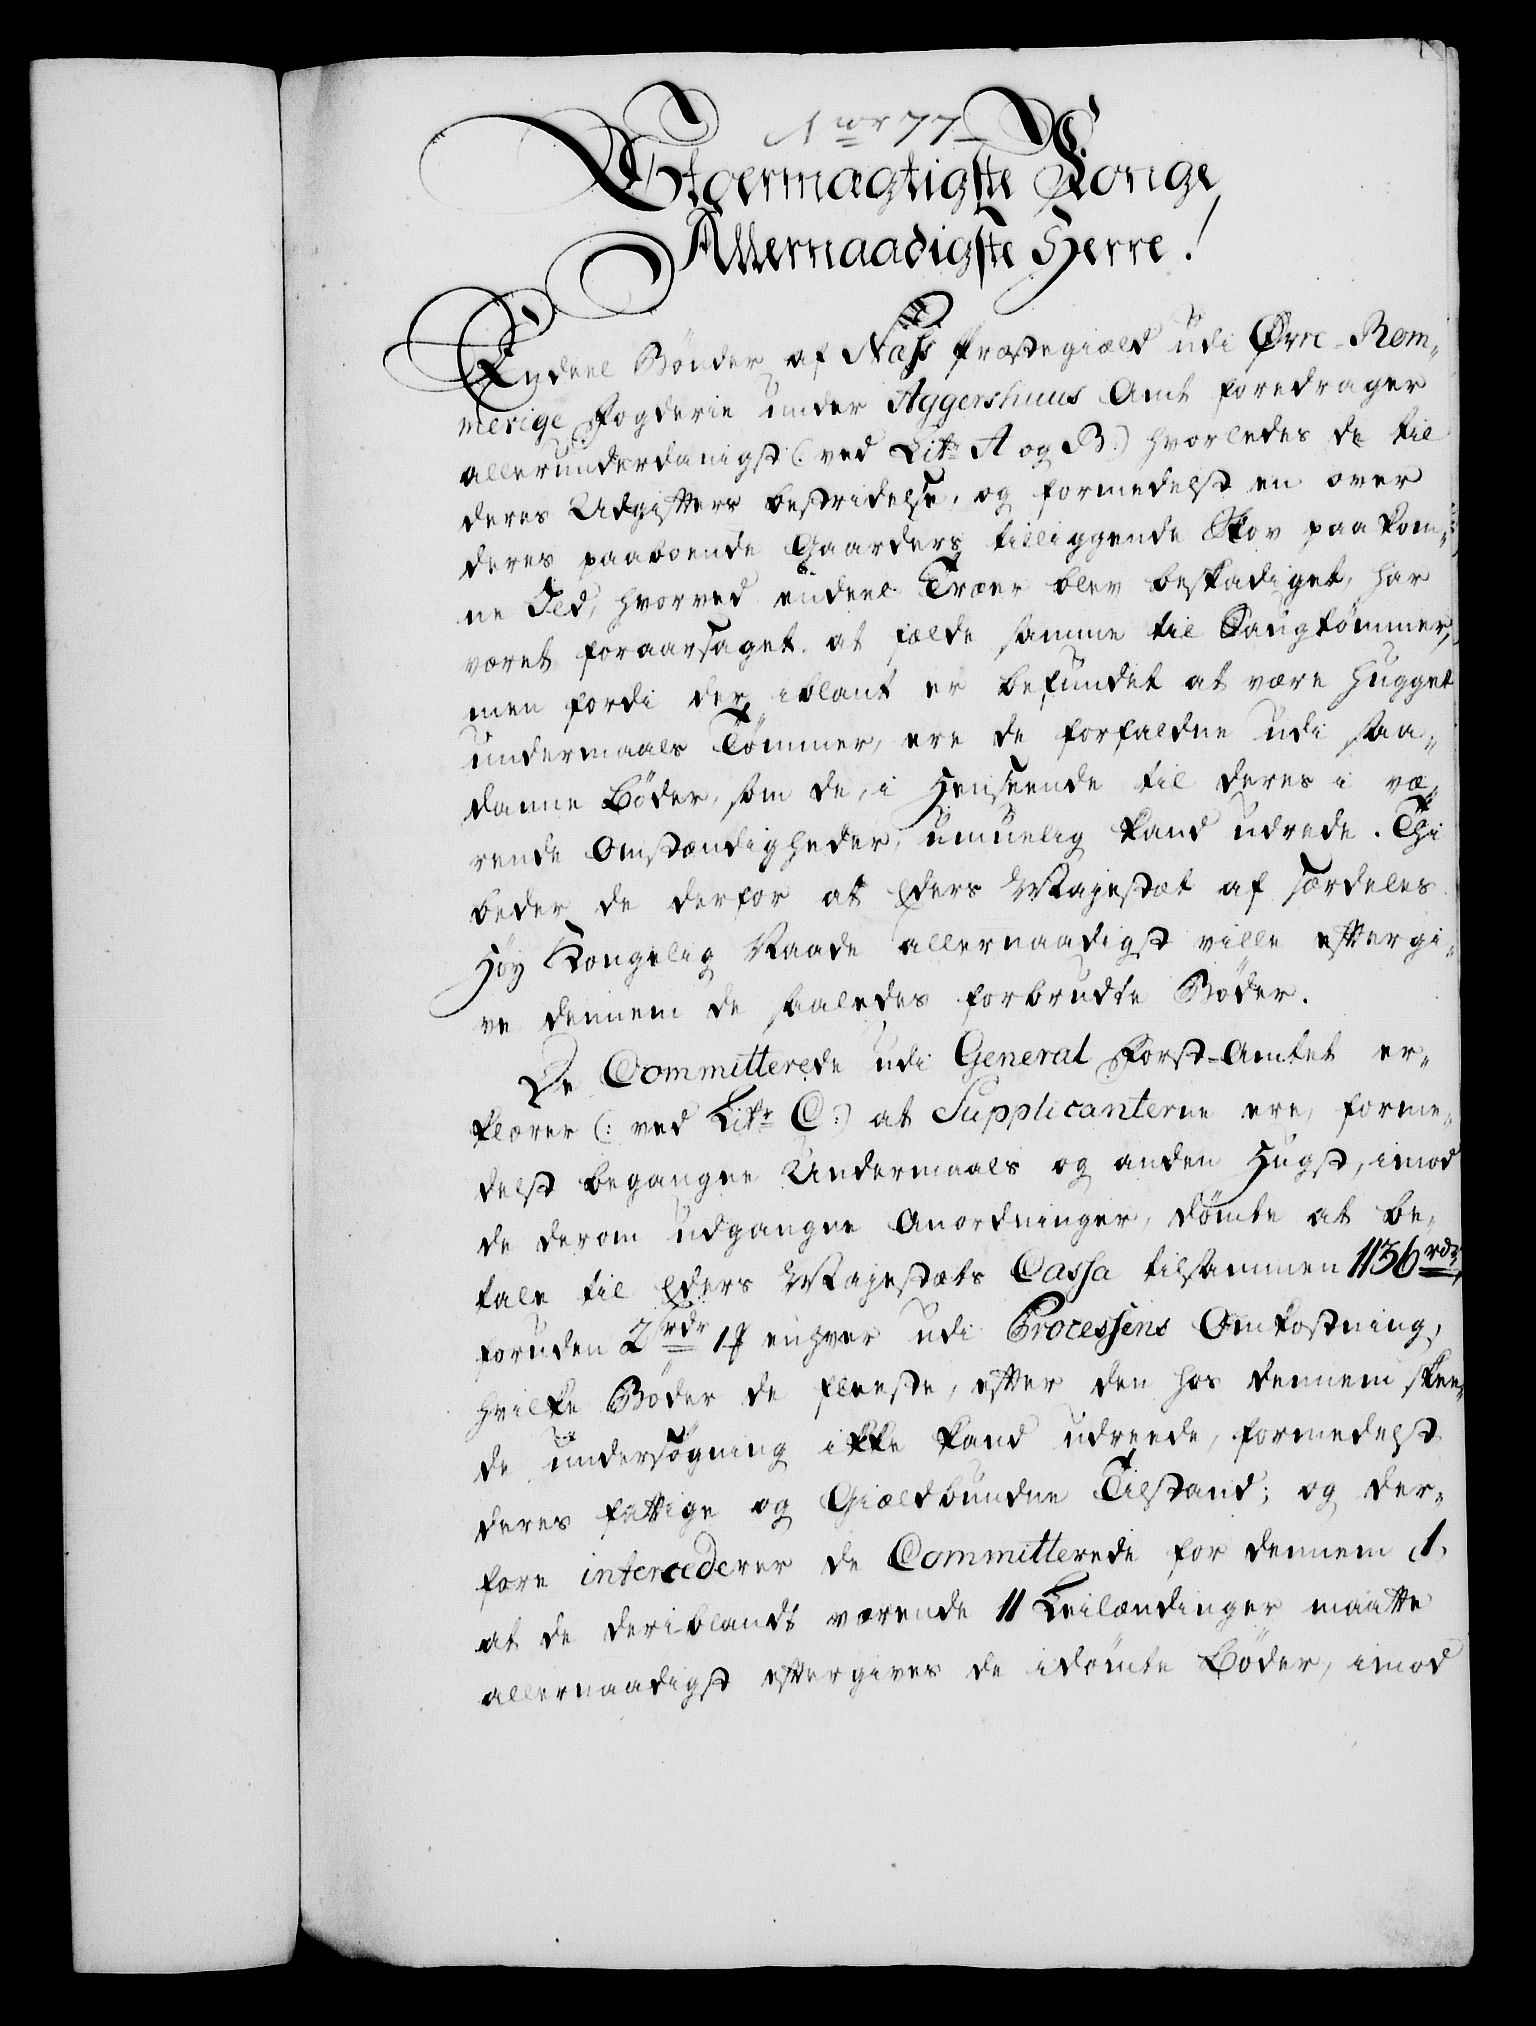 Nor 77
Stoermægtigste Konge
Allernaadigste Herre!
Endeel Bönder af Næss Præstegiæld udi Øvre-Rom-
merige Fogderie under Aggershuus Amt foredrager
allerunderdanigst (: ved Litr A og B:) hvorledes de til
deres Udgifters bestridelse, og formedelst en over
deres paaboende Gaarders tilliggende Skov paakom-
ne Ild, hvorved endeel Træer blev beskadiget, har
været foraarsaget at fælde samme til Saugtömmer,
men fordi der iblant er befundet at være hugget
undermaals Tömmer, ere de forfaldne udi saa-
danne Böder, som de, i Henseende til deres i væ-
rende Omstændigheder, umuelig kand udrede. Thi
beder de derfor at Eders Majestæt af særdeles
Höy Kongelig Naade allernaadigst ville eftergi-
ve dennem de saaledes forbrudte Böder.
De Committerede udi General Forst-Amtet er-
klærer (: ved Litr C:) at Supplicanterne ere, forme-
delst begangne Undermaals og anden Hugst, imod
de derom udgangne Anordninger, dömte at be-
tale til Eders Majestæts Cassa tilsammen 1136 rdr,
foruden 2 rdr 1 ß enhver udi Processens Omkostning,
hvilke Böder de fleeste, efter den hos dennem skee-
de undersögning ikke kand udreede, formedelst
deres fattige og Giældbundne Tilstand; og der-
fore intercederer de Committerede for dennem 1.
at de deriblandt værende 11 Leilændinger maatte
allernaadigst eftergives de idömte Böder, imod